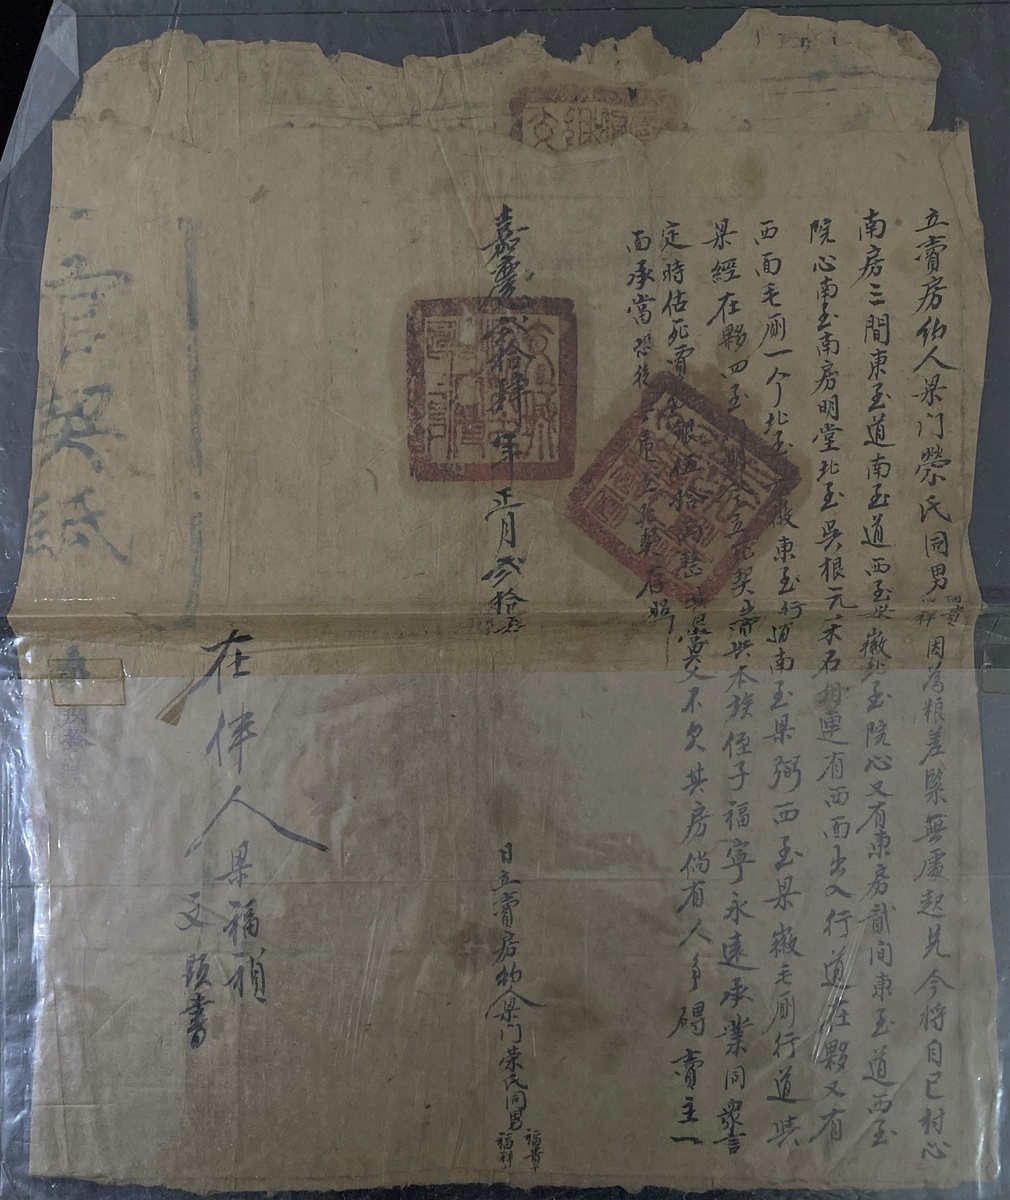 立賣房約人梁门榮氏同男福貴福祥因為粮差緊無處起兑今將自已村心
南房三間東至道南至道西至梁徽北至院心又有東房貳间東至道西至
院心南至南房明堂北至吳根元木石相連有西面出入行道在夥又有
西面毛厠一个北至徽東至行道南至梁弼西至梁徽毛厠行道共
梁經在夥四至明今立死契賣與本族侄子福寧永遠承業同衆言
定時估死賈銀伍拾両整当日業價當交不欠其房倘有人争碍賣主一
面承當恐後立張契存照
嘉慶貳拾肆年正月貳拾五日立賣房約人梁门荣氏同男福貴福祥
在仲人梁福順
文顕書
官契紙